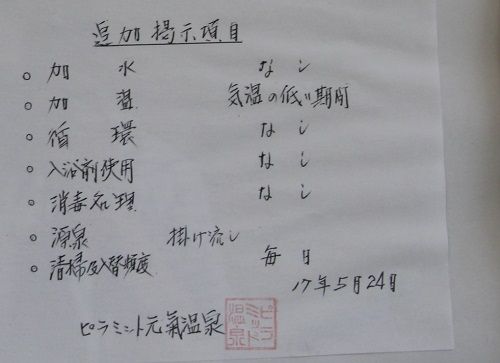 追加掲示項目
○ 加水 なし
○ 加温 気温の低い期間
○ 循環 なし
○ 入浴剤使用 なし
○ 消毒処理 なし
○ 源泉 掛け流し
○ 清掃及入替頻度 毎日
17年5月24日
ピラミット元氣温泉
ピラミット温泉